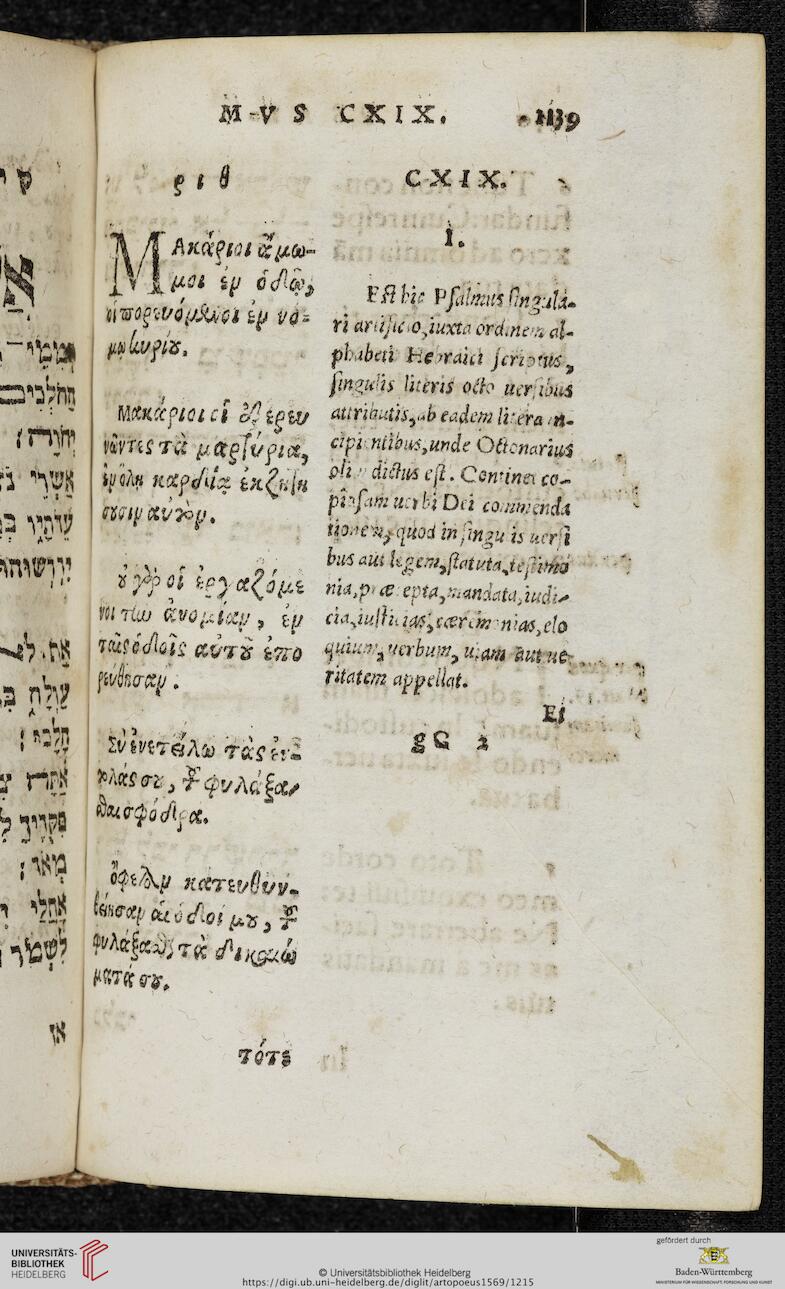 M V S CXIX.
1139
ριθ
ΜΑκάριοι ἄμω-
μοι ἐν ὁδῷ,
οἱ πορευόμενοι ἐν νό-
μῳ κυρίου.
Μακάριοι οἱ ἐξερευ
νῶντες τὰ μαρτύρια,
ἐν ὅλῃ καρδίᾳ ἐκζητή
σουσιν αὐτὸν.
οὐ γὰρ οἱ ἐργαζόμε
νοι τὴν ἀνομίαν, ἐν
ταῖς ὁδοῖς αὐτοῦ ἐπο
ρεύθησαν.
Σὺ ἐνετείλω τὰς ἐν-
τολάς σου, τοῦ φυλάξα-
σθαι σφόδρα.
ὄφελον κατευθυν-
θείησαν αἱ ὁδοί μου, τοῦ
φυλάξασθαι τὰ δικαιώ
ματά σου.
τότε
CXIX.
I.
Est hic Psalmus singula-
ri artificio, iuxta ordinem al-
phabeti Hebraici scriptus,
singulis literis octo uersibus
attributis, ab eadem litera in-
cipientibus, unde Octonarius
olim dictus est. Continet co-
piosam uerbi Dei commenda
tionem, quod in singulis uersi
bus aut legem, statuta, testimo
nia, præcepta, mandata, iudi-
cia, iusticias, cæremonias, elo
quium, uerbum, uiam aut ue-
ritatem appellat.
Ei
gG 2
יְהֹוָה:
אַשְׁרֵי
אַתָּה
מְאֹד:
אַחֲלַי
לִשְׁמֹר
אז
UNIVERSITÄTS-
BIBLIOTHEK
HEIDELBERG
© Universitätsbibliothek Heidelberg
https://digi.ub.uni-heidelberg.de/diglit/artopoeus1569/1215
gefördert durch
Baden-Württemberg
MINISTERIUM FÜR WISSENSCHAFT, FORSCHUNG UND KUNST